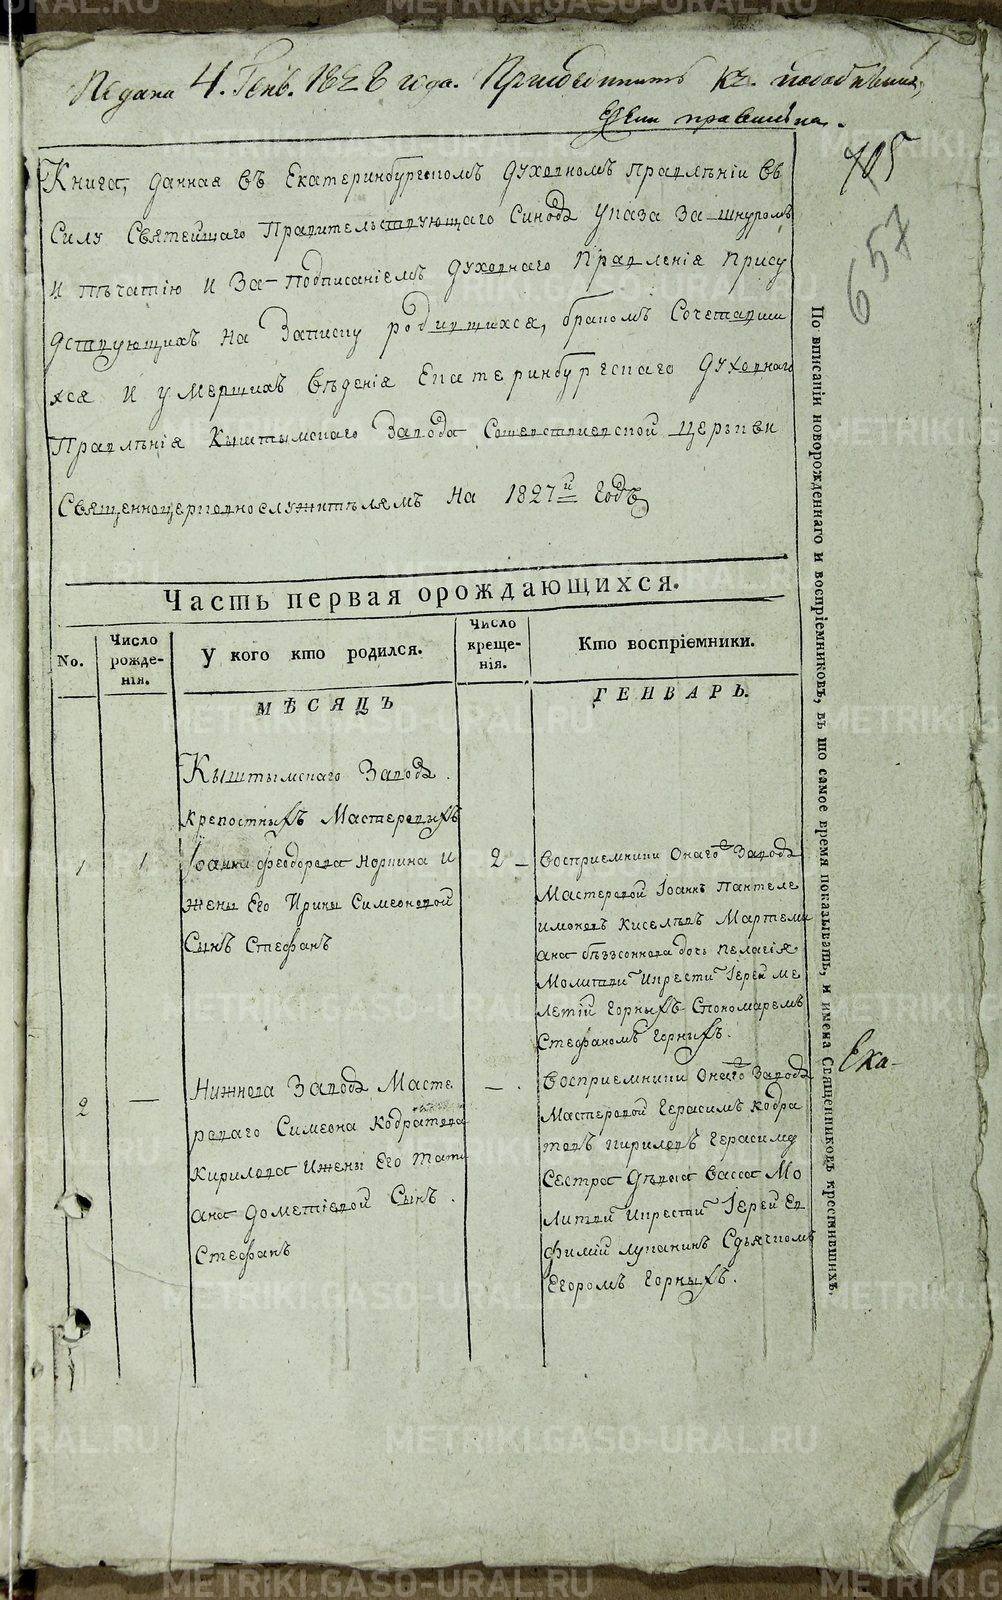 Подана 4. Генв. 1828 года. Приобщить къ
705
657
Книга, данная въ Екатеринбургскомъ Духовномъ Правлѣніи въ
Силу Святейшаго Правительствующаго Синода Указа За-шнуромъ
И печатію И За-подписаніемъ Духовнаго Правленія Прису
дствующихъ На Записку родившихся, бракомъ Сочетавши
хся И умершихъ Вѣденія Екатеринбургскаго Духовнаго
Правлѣнія Кыштымскаго Завода Сошественской церькви
Священноцерковнослужитѣлямъ На 1827й Годъ
Часть первая орождающихся.
No.
Число рожде-нія.
У кого кто родился.
Число креще-нія.
Кто воспріемники.
МѢСЯЦЪ
ГЕНВАРЬ.
Кыштымскаго Завода
крепостныхъ Мастеровыхъ
1
1
Іоанна Феодорова Норкина И
жены Его Ирины Симеоновой
Сынъ Стефанъ
2 –
Восприемники Онаго Завода
Мастеровой Іоаннъ Пантеле
имоновъ Киселевъ Мартеми
ана бѣззсоннова дочь Пелагія
Молитвил Икрестил Іерей Ме
летій Горныхъ Спономаремъ
Стефаномъ Горныхъ.
2
—
Нижнова Завода Масте
роваго Симеона Кодратова
Кирилова Ижены Его Тати
ана Дометіевой Сынъ.
Стефанъ
—.
Восприемники Онаго Завода
Мастеровой Герасимъ Кодра
товъ Кириловъ Герасима
Сестра Девка Васса Мо
литвил Икрестил Іерей Ев
фимій Лупанинъ Сдьячкомъ
Егоромъ Горныхъ.
По вписаніи новорожденнаго и воспріемниковъ, въ то самое время показывать, и имена Священниковъ крестившихъ.
Ека-